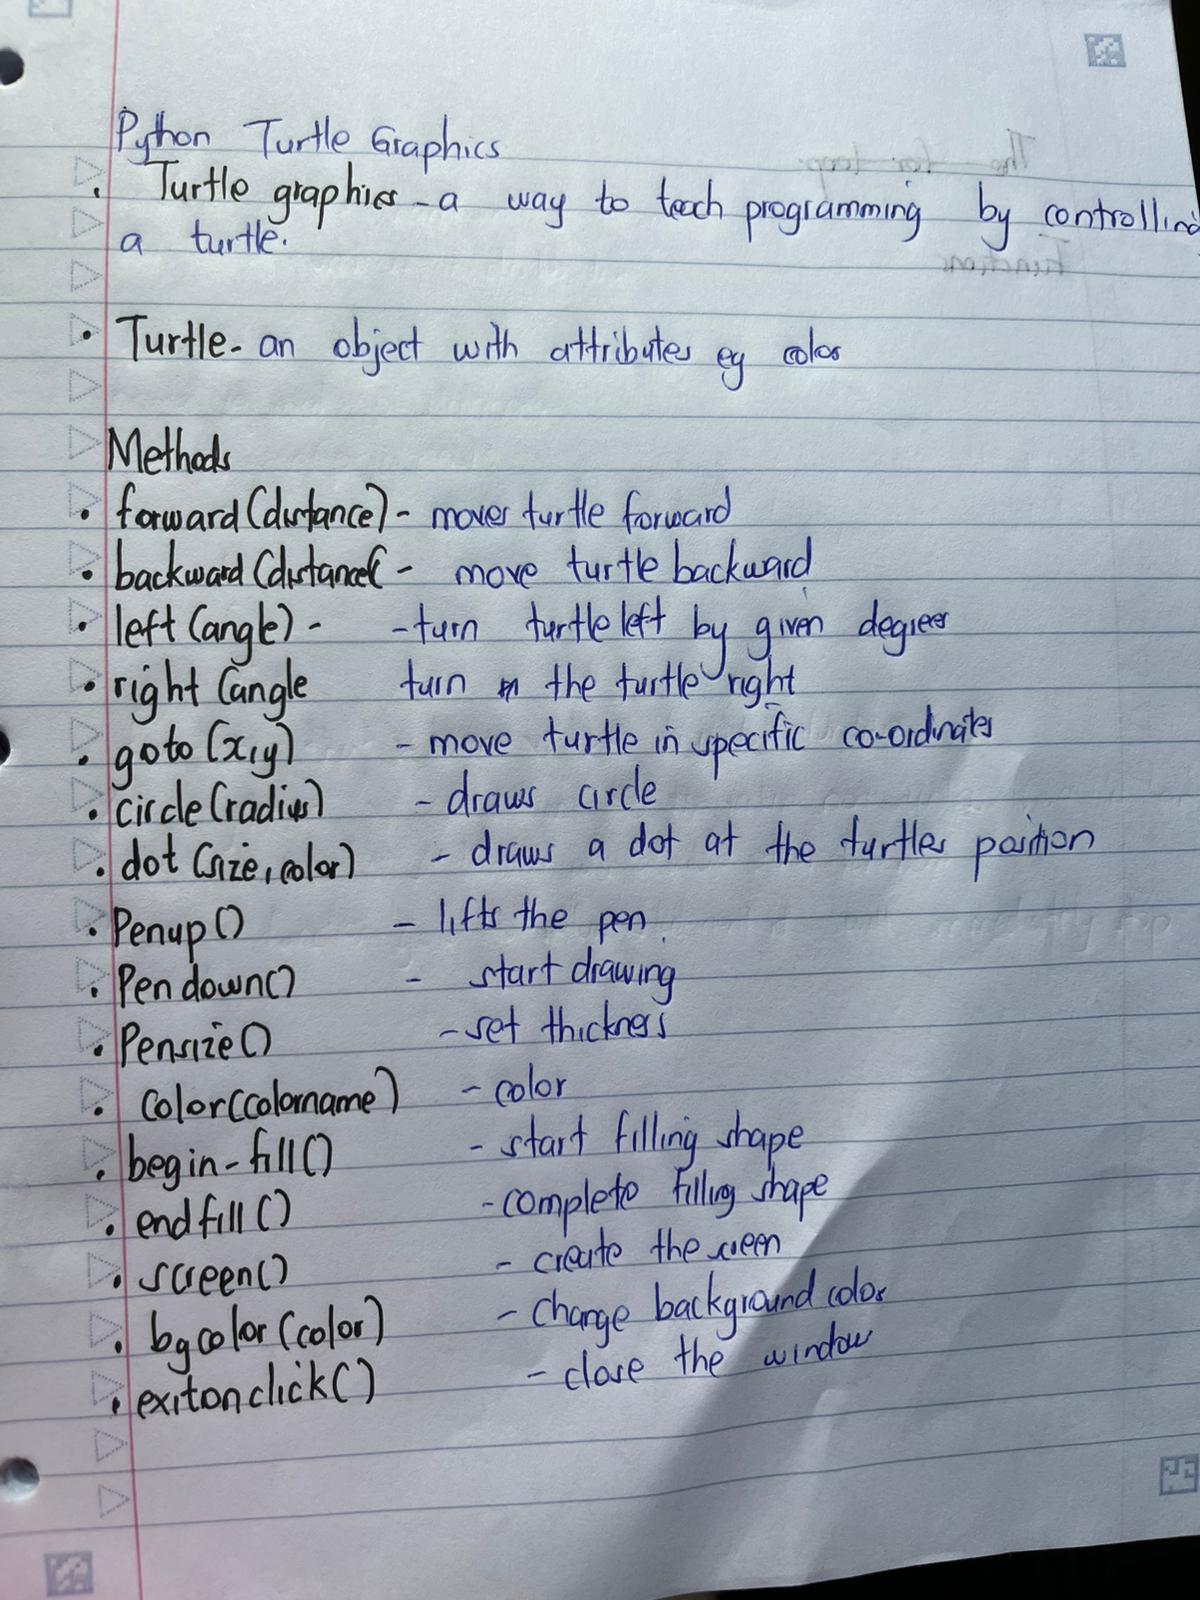 Python Turtle Graphics
. Turtle graphics - a way to teach programming by controlling
a turtle.
• Turtle - an object with attributes eg color
Methods
• forward (distance) - moves turtle forward
• backward (distance( - move turtle backward
• left (angle) - - turn turtle left by given degrees
• right (angle turn the turtle right
• goto (x,y) - move turtle in specific co-ordinates
• circle (radius) - draws circle
• dot (size, color) - draws a dot at the turtles position
• Penup () - lifts the pen
• Pen down () - start drawing
• Pensize () - set thickness
• Color (colorname) - color
• begin - fill () - start filling shape
• end fill () - complete filling shape
• screen () - create the screen
• bgcolor (color) - change background color
• exitonclick () - close the window